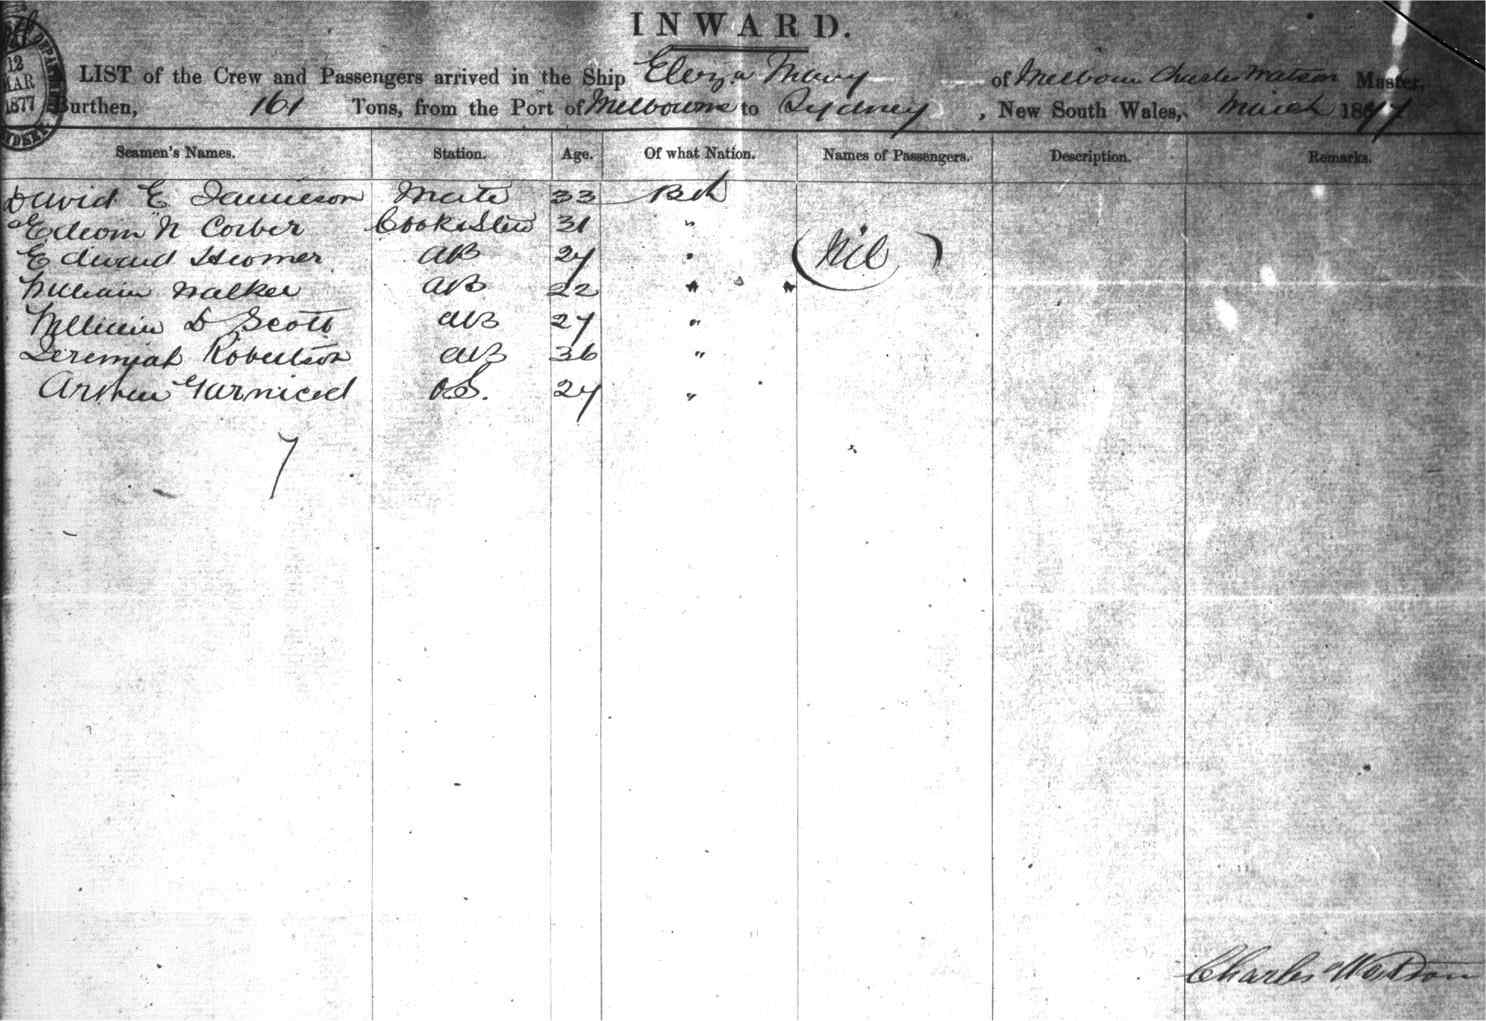 INWARD.
12
MAR
1877
LIST of the Crew and Passengers arrived in the Ship Eliza Mary of Melbourn Charles Watson Master,
Burthen, 161 Tons, from the Port of Melbourne to Sydney, New South Wales, March 1877
Seamen's Names. Station. Age. Of what Nation. Names of Passengers. Description. Remarks.
David E Jamieson Mate 33 Bsh
N Corber Cook & Stew 31 "
Edward 27 " (Nil)
William Walker AB 22 "
William D Scott AB 27 "
Jeremiah Robertson AB 36 "
Arthur O.S. 27 "
7
Charles Watson